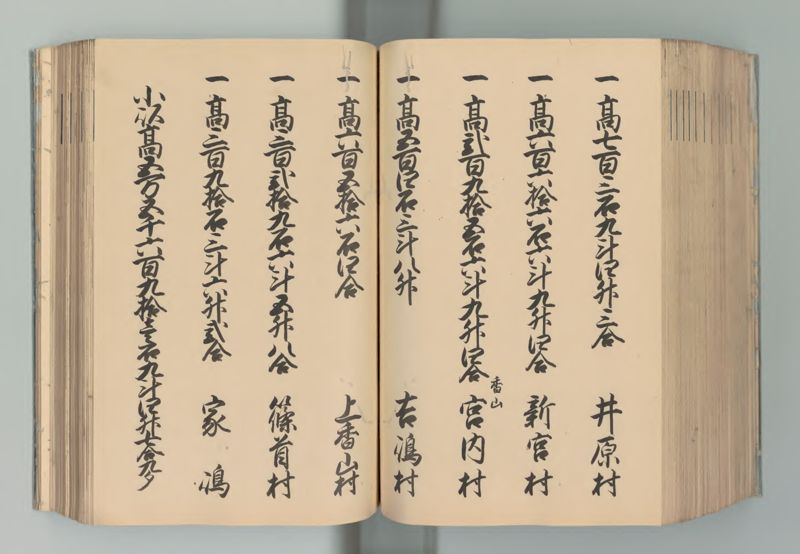 一高七百三石九斗四升三合 井原村
一高六百六拾六石六斗九升四合 新宮村
一高弐百九拾五石六斗九升四合 香山宮内村
一高五百四石三斗八升 吉嶋村
一高六百五拾六石四合 上香山村
一高三百弐拾九石六斗五升八合 篠首村
一高三百九拾石三斗六升弐合 家嶋
小以高五万五千六百九拾三石九斗四升七合九夕